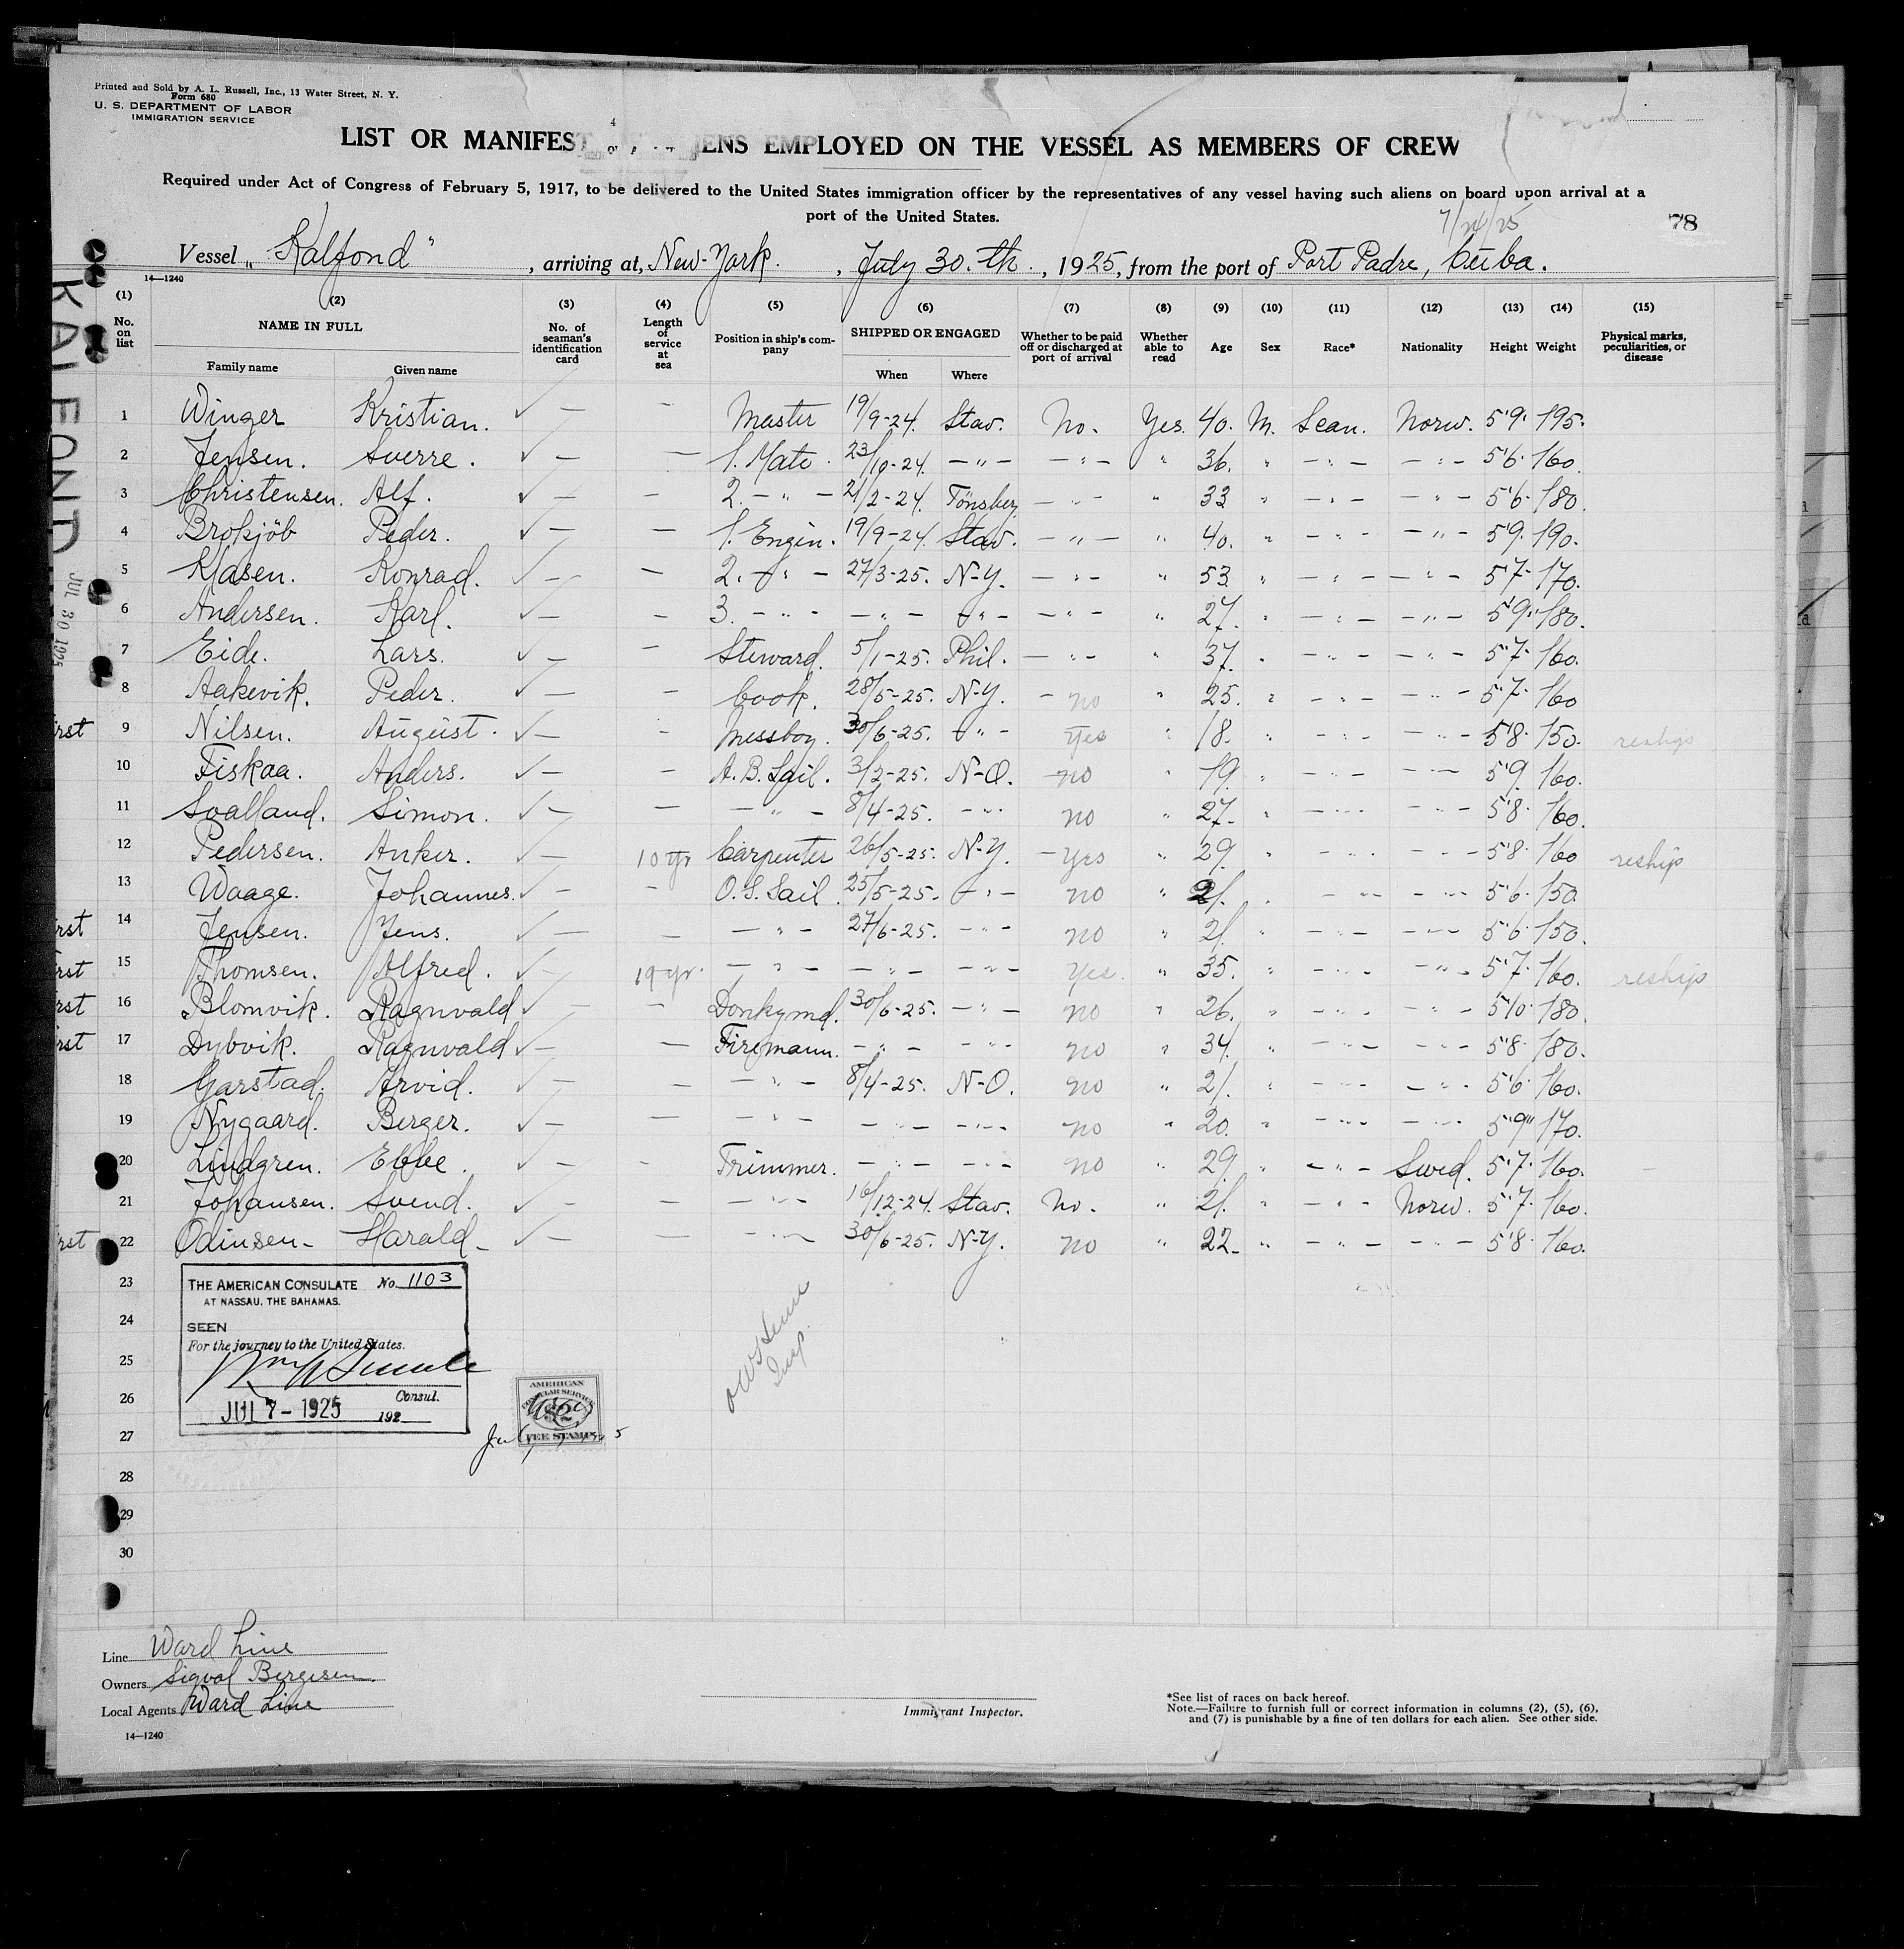 Printed and Sold by A. L. Russell, Inc., 13 Water Street, N. Y.
Form 680
U. S. DEPARTMENT OF LABOR
IMMIGRATION SERVICE
4
LIST OR MANIFEST EMPLOYED ON THE VESSEL AS MEMBERS OF CREW
Required under Act of Congress of February 5, 1917, to be delivered to the United States immigration officer by the representatives of any vessel having such aliens on board upon arrival at a
port of the United States.
7/24/25
78
Vessel „Kalfond", arriving at, New-York., July 30.th., 1925, from the port of Port Padre, Cuba.
14—1240
KALFOND
JUL 30 1925
(1) (2) (3) (4) (5) (6) (7) (8) (9) (10) (11) (12) (13) (14) (15)
No. on list NAME IN FULL No. of seaman's identification card Length of service at sea Position in ship's company SHIPPED OR ENGAGED Whether to be paid off or discharged at port of arrival Whether able to read Age Sex Race* Nationality Height Weight Physical marks, peculiarities, or disease
Family name Given name When Where
1 Winger Kristian. ✓ — - Master 19/9-24. Stav. No. Yes. 40. M. Scan. Norw. 5'9" 195.
2 Jensen. Sverre. ✓ — — 1. Mate. 23/10-24. — " — — " — " 36. " — " — — " — 5'6" 160.
3 Christensen. Alf. ✓ — — 2. — " — 21/2-24. Tönsberg. — " — " 33 " — " — — " — 5'6" 180.
4 Brokjöb Peder. ✓ — — 1. Engin. 19/9-24. Stav. — " — " 40. " — " — — " — 5'9" 190.
5 Klasen. Konrad. ✓ — — 2. — " — 27/3-25. N-Y. — " — " 53 " — " — — " — 5'7" 170.
6 Andersen. Karl. ✓ — — 3. — " — — " — — " — — " — " 27. " — " — — " — 5'9" 180.
7 Eide. Lars. ✓ — — Steward. 5/1-25. Phil. — " — " 37. " — " — — " — 5'7" 160.
8 Aakevik. Peder. ✓ — — Cook. 28/5-25. N-Y. - no " 25. " — " — — " — 5'7" 160
rst 9 Nilsen. August. ✓ — - Messboy. 30/6-25. — " — Yes " 18. " — " — — " — 5'8" 150. reship
10 Fiskaa. Anders. ✓ — — A.B. Sail. 3/2-25. N-O. no " 19. " — " — — " — 5'9 160.
11 Soalland. Simon. ✓ — — — " — 8/4-25. — " — no " 27. " — " — — " — 5'8" 160.
12 Pedersen. Anker. ✓ — 10 yr Carpenter 26/5-25. N-Y. - Yes " 29. " — " — — " — 5'8" 160 reship
13 Waage. Johannes. ✓ — - O.S. Sail. 25/5-25. — " — no " 21. " — " — — " — 5'6" 150.
rst 14 Jensen. Jens. ✓ — — — " — 27/6-25. — " — no " 21. " — " — — " — 5'6" 150.
rst 15 Thomsen. Alfred. ✓ — 19 yr. — " — — " — — " — Yes. " 35. " — " — — " — 5'7" 160. reship
rst 16 Blomvik. Ragnvald ✓ — — Donkymd. 30/6-25. — " — no " 26. " — " — — " — 5'10" 180.
rst 17 Dybvik. Ragnvald ✓ — — Firemann. — " — — " — no " 34. " — " — — " — 5'8" 180.
18 Garstad. Arvid. ✓ — — — " — 8/4-25. N-O. no " 21. " — " — — " — 5'6" 160.
19 Nygaard. Berger. ✓ — — — " — — " — — " — no " 20. " — " — — " — 5'9" 170.
20 Lindgren. Ebbe. ✓ — - Trimmer. — " — — " — no " 29. " — " — Swed. 5'7" 160.
21 Johansen. Svend. ✓ — — — " — 16/12-24. Stav. No. " 21. " — " — Norw. 5'7" 160.
rst 22 Odinsen- Harald- ✓ — — — " — 30/6-25. N-Y. no " 22- " — " — — " — 5'8" 160.
23
24
25
26
27
28
29
30
THE AMERICAN CONSULATE No. 1103
AT NASSAU, THE BAHAMAS.
SEEN
For the journey to the United States.
Consul.
JUL 7 - 1925 192
AMERICAN
CONSULAR SERVICE
$2
FEE STAMP
Insp.
Line Ward Line
Owners Sigval Bergesen
Local Agents Ward Line
14—1240
Immigrant Inspector.
*See list of races on back hereof.
Note.—Failure to furnish full or correct information in columns (2), (5), (6),
and (7) is punishable by a fine of ten dollars for each alien. See other side.